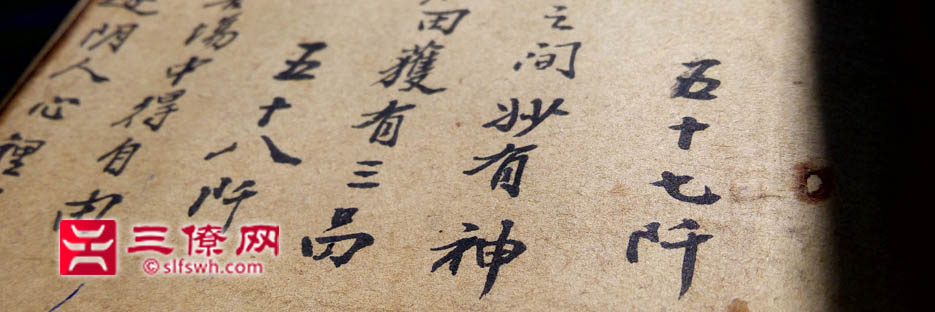 五十七阡
之间妙有神
田獲有三品
五十八阡
場中得自由
阴人心裡
三僚网
© slfswh.com